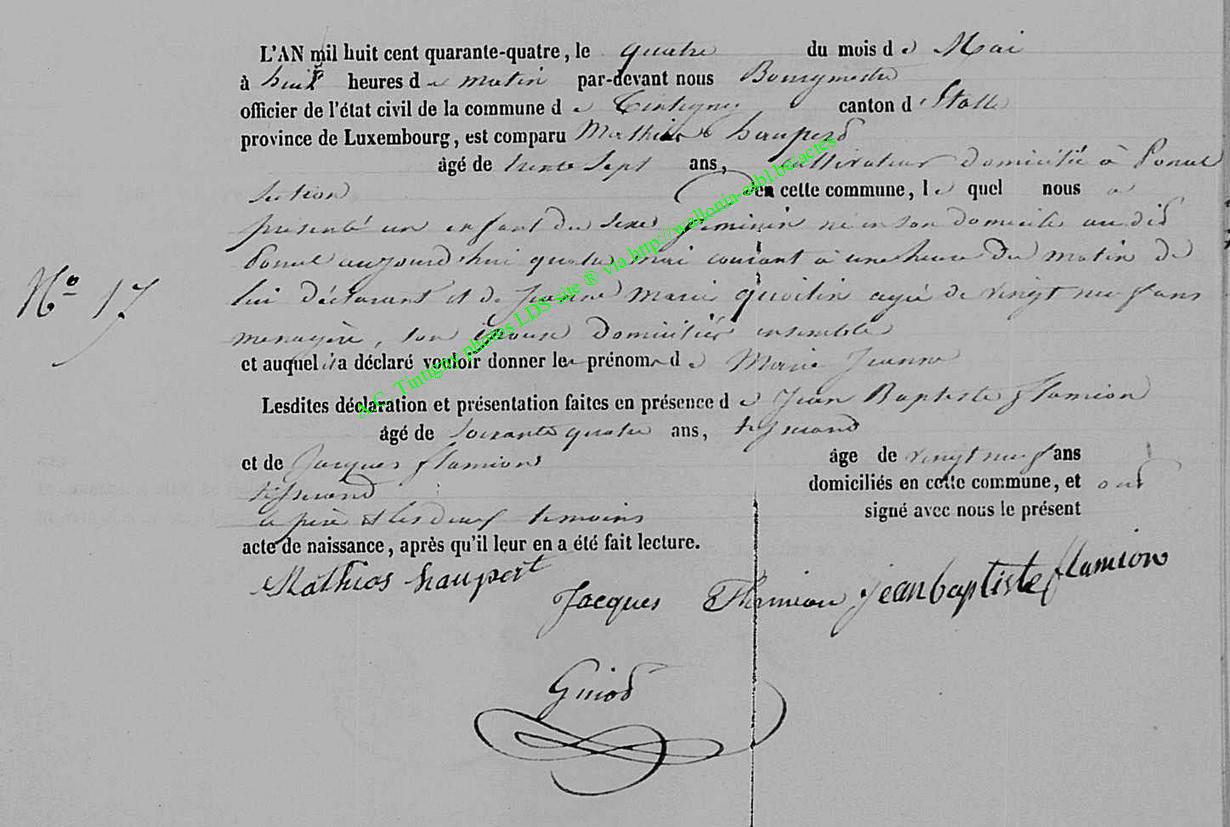 L'AN mil huit cent quarante-quatre, le quatre du mois de Mai
à huit heures de matin par-devant nous Bourgmestre
officier de l'état civil de la commune de Tintigny canton d'Etalle
province de Luxembourg, est comparu Mathias haupert
âgé de trente sept ans, cultivateur domicilié à
section en cette commune, lequel nous a
présenté un enfant du sexe féminin né en son domicile au dit
aujourd'hui quatre mai courant à une heure du matin de
lui déclarant et de Jeanne Marie agée de vingt neuf ans
menagère, son épouse domiciliés ensemble
et auquel il a déclaré vouloir donner les prénoms de Marie Jeanne
Lesdites déclaration et présentation faites en présence de Jean Baptiste flamion
âgé de soixante quatre ans, tisserand
et de Jacques flamion âge de vingt neuf ans
tisserand domiciliés en cette commune, et ont
le père et les deux temoins signé avec nous le présent
acte de naissance, après qu'il leur en a été fait lecture.
Mathias haupert
Jacques Flamion jean baptiste flamion
Guiod
N° 17
A.G. Tintigny photos LDS site ® via http://wallonia-asbl.be/actes